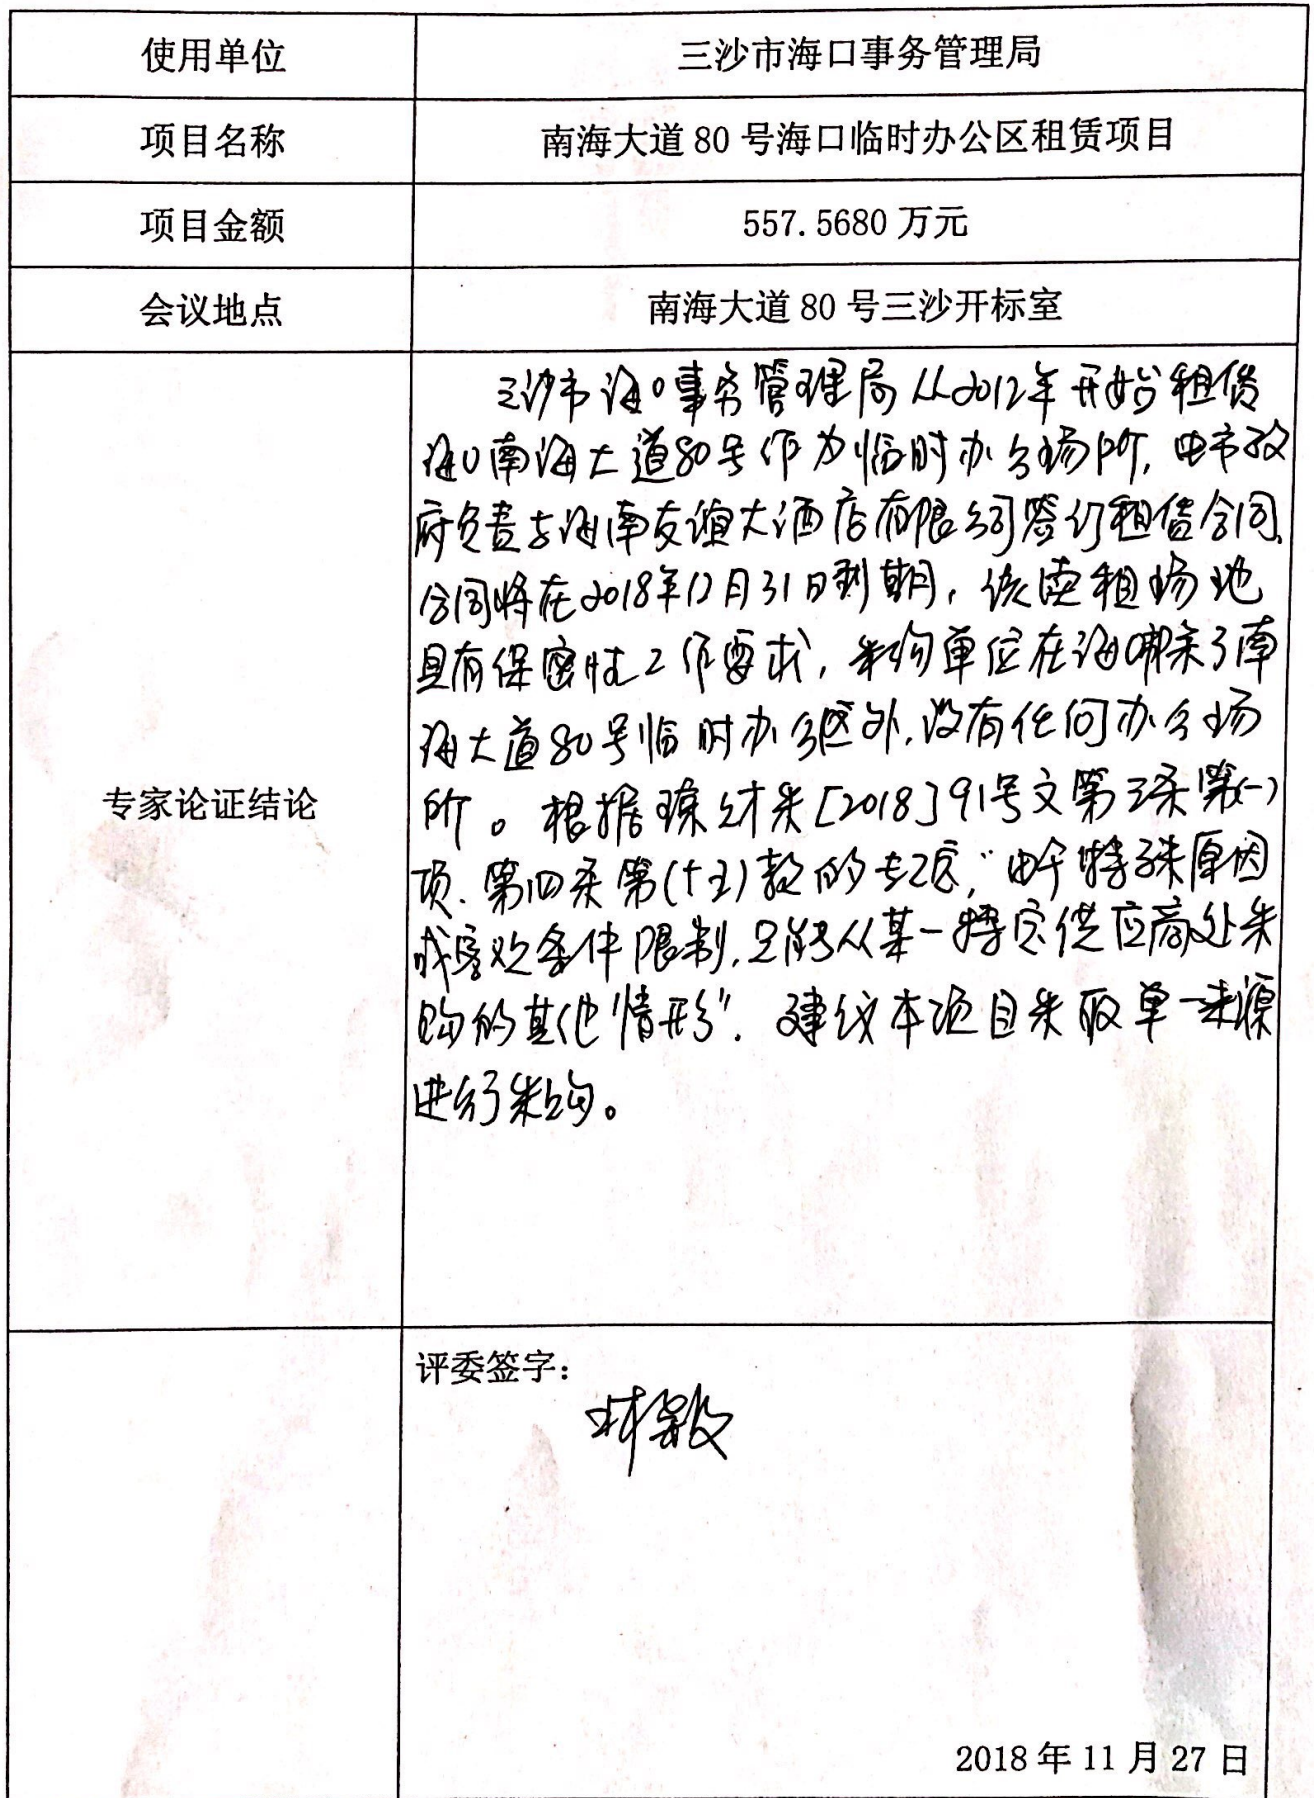 使用单位
三沙市海口事务管理局
项目名称
南海大道 80 号海口临时办公区租赁项目
项目金额
557.5680 万元
会议地点
南海大道 80 号三沙开标室
专家论证结论
三沙市海口事务管理局从2012年开始租赁
海口南海大道80号作为临时办公场所,由市政
府负责与海南友谊大酒店有限公司签订租赁合同,
合同将在2018年12月31日到期,该续租场地
具有保密性工作要求,采购单位在海口除了南
海大道80号临时办公区外,没有任何办公场
所。根据琼财采[2018]91号文第三条第(一)
项、第四条第(十五)款的规定,"由于特殊原因
或客观条件限制,只能从某一特定供应商处采
购的其他情形",建议本项目采取单一来源
进行采购。
评委签字:
2018 年 11 月 27 日